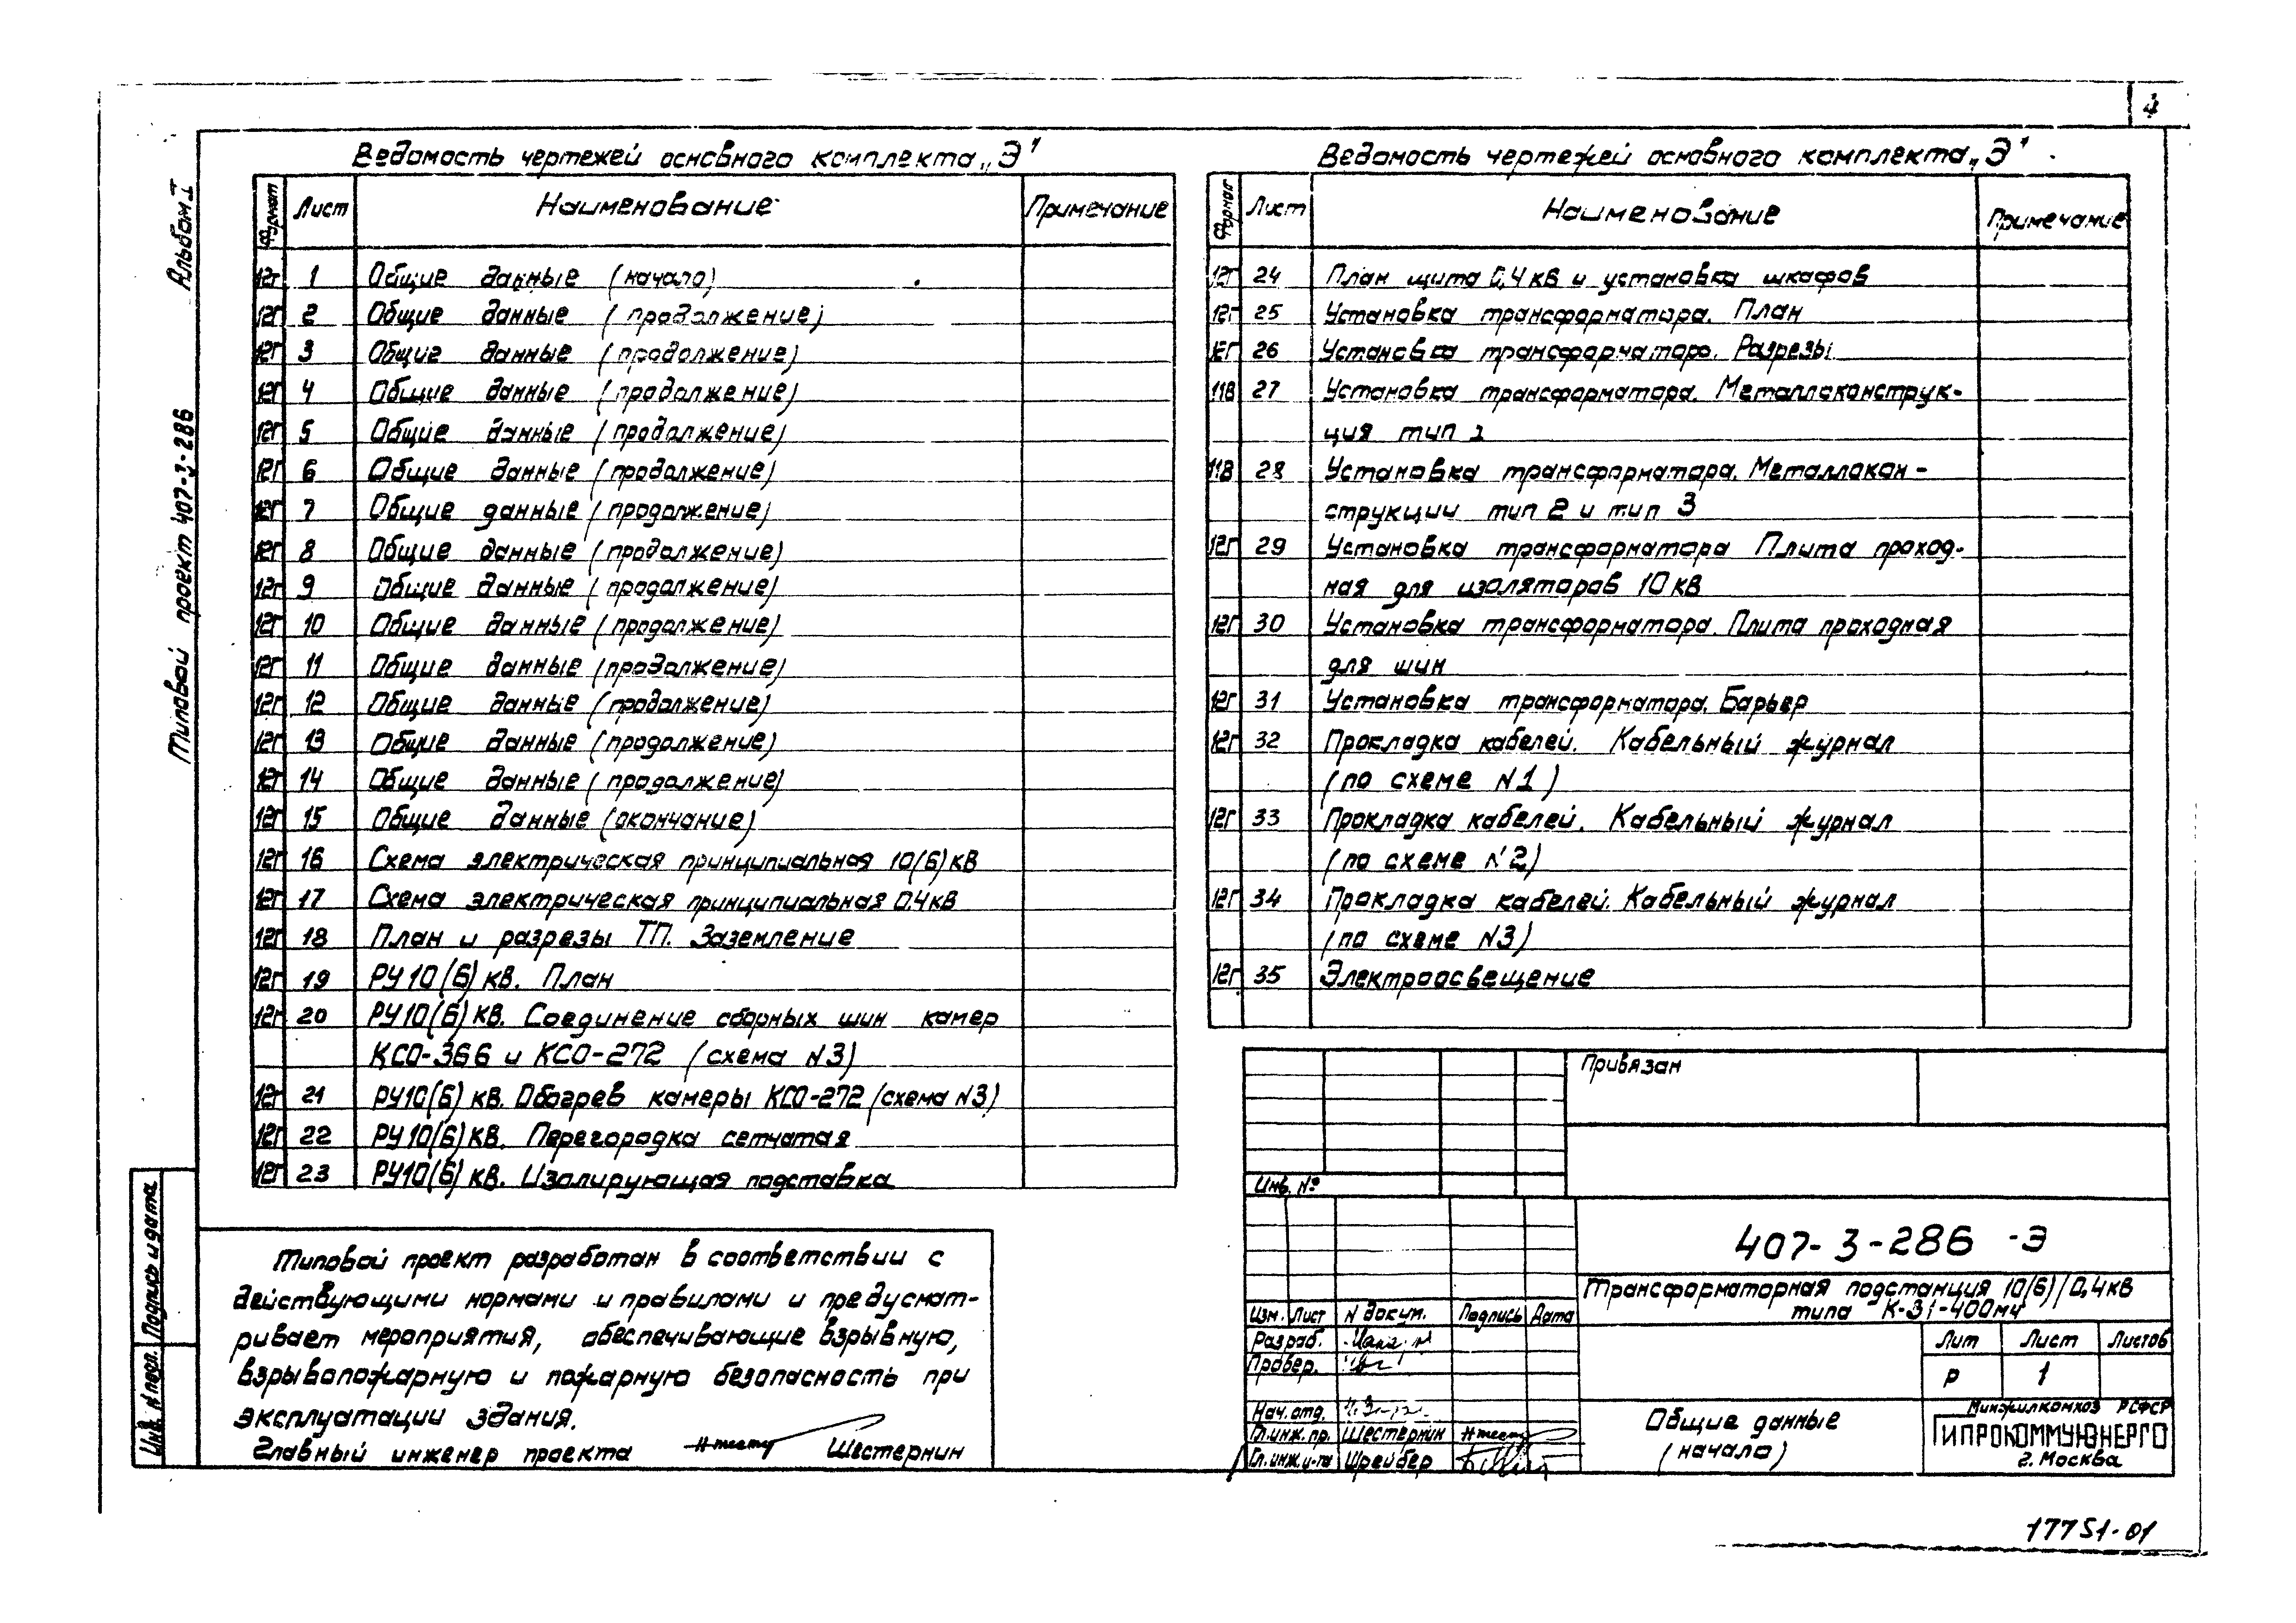 4
Альбом I
Типовой проект 407-3-286
Ведомость чертежей основного комплекта „Э"
Формат Лист Наименование Примечание
12г 1 Общие данные (начало)
12г 2 Общие данные (продолжение)
12г 3 Общие данные (продолжение)
12г 4 Общие данные (продолжение)
12г 5 Общие данные (продолжение)
12г 6 Общие данные (продолжение)
12г 7 Общие данные (продолжение)
12г 8 Общие данные (продолжение)
12г 9 Общие данные (продолжение)
12г 10 Общие данные (продолжение)
12г 11 Общие данные (продолжение)
12г 12 Общие данные (продолжение)
12г 13 Общие данные (продолжение)
12г 14 Общие данные (продолжение)
12г 15 Общие данные (окончание)
12г 16 Схема электрическая принципиальная 10(6) кВ
12г 17 Схема электрическая принципиальная 0,4 кВ
12г 18 План и разрезы ТП. Заземление
12г 19 РУ 10(6) кВ. План
12г 20 РУ 10(6) кВ. Соединение сборных шин камер
КСО-366 и КСО-272 (схема N3)
12г 21 РУ 10(6) кВ. Обогрев камеры КСО-272 (схема N3)
12г 22 РУ 10(6) кВ. Перегородка сетчатая
12г 23 РУ 10(6) кВ. Изолирующая подставка
Ведомость чертежей основного комплекта „Э"
Формат Лист Наименование Примечание
12г 24 План щита 0,4 кВ и установка шкафов
12г 25 Установка трансформатора. План
12г 26 Установка трансформатора. Разрезы
11В 27 Установка трансформатора. Металлоконструк-
ция тип 1
11В 28 Установка трансформатора. Металлокон-
струкции тип 2 и тип 3
12г 29 Установка трансформатора Плита проход-
ная для изоляторов 10 кВ
12г 30 Установка трансформатора. Плита проходная
для шин
12г 31 Установка трансформатора. Барьер
12г 32 Прокладка кабелей. Кабельный журнал
(по схеме N1)
12г 33 Прокладка кабелей. Кабельный журнал
(по схеме N2)
12г 34 Прокладка кабелей. Кабельный журнал
(по схеме N3)
12г 35 Электроосвещение
Типовой проект разработан в соответствии с
действующими нормами и правилами и предусмат-
ривает мероприятия, обеспечивающие взрывную,
взрывопожарную и пожарную безопасность при
эксплуатации здания.
Главный инженер проекта Шестернин
Подпись и дата
Инв. N подл.
Привязан
Инв. №
407-3-286 -Э
Трансформаторная подстанция 10(6)/0,4кВ
типа К-31-400м4
Изм. Лист N докум. Подпись Дата
Разраб.
Провер.
Нач. отд.
Гл. инж. пр. Шестернин
Гл. инж. и-та Шрейбер
Лит Лист Листов
Р 1
Общие данные
(начало)
Минжилкомхоз РСФСР
ГИПРОКОММУНЭНЕРГО
г. Москва
17751-01